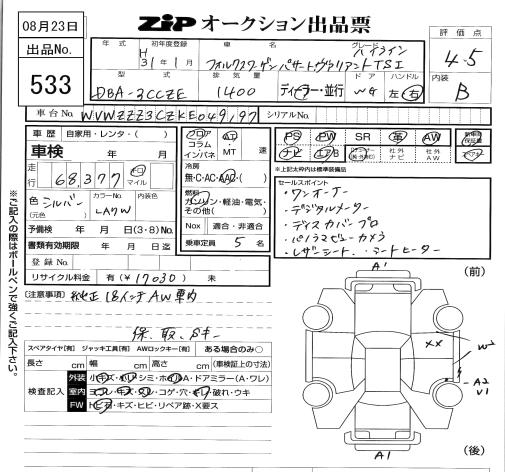 08月23日
ZiP オークション出品票
出品No.
533
年式 初年度登録 車名 グレード 評価点
H 31年1月 フォルクスワーゲン パサートヴァリアント TSI ハイライン
4.5
型式 排気量 ドア ハンドル 内装
DBA-3CCZE 1400 ディーラー・並行 WG 左・右 B
車台No. WVWZZZ3CZKE049197 シリアルNo.
車歴 自家用・レンタ・( )
フロア コラム インパネ AT・MT 速
PS PW SR 革 AW
ナビ エアB 社外ナビ 社外AW
※上記太枠内は標準装備品
車検 年 月
走行 68,377 キロ マイル
冷房
無・C・AC・AAC・( )
燃料
ガソリン・軽油・電気・その他( )
色 シルバー (元色) カラーNo. LA7W
予備検 年 月 日(3・8)No.
Nox 適合・非適合
書類有効期限 年 月 日迄
乗車定員 5 名
登録No.
リサイクル料金 有(¥17030) 未
セールスポイント
・ワンオーナー
・デジタルメーター
・ディスカバープロ
・パノラマビューカメラ
・レザーシート、シートヒーター
[注意事項] 純正18インチAW 車内
保、取、Sキー
スペアタイヤ[有] ジャッキ工具[有] AWロックキー[有] ある場合のみ〇
長さ cm 幅 cm 高さ cm (車検証上の寸法)
検査記入
外装 小キズ・凹ミ・シミ・ホイルA・ドアミラー(A・ワレ)
室内 ヨゴレ・キズ・スレ・コゲ・穴・キレ・破れ・ウキ
FW トビ石・キズ・ヒビ・リペア跡・X要ス
※ご記入の際はボールペンで強くご記入下さい。
A1
(前)
XX
W2
A2
V1
A1
(後)